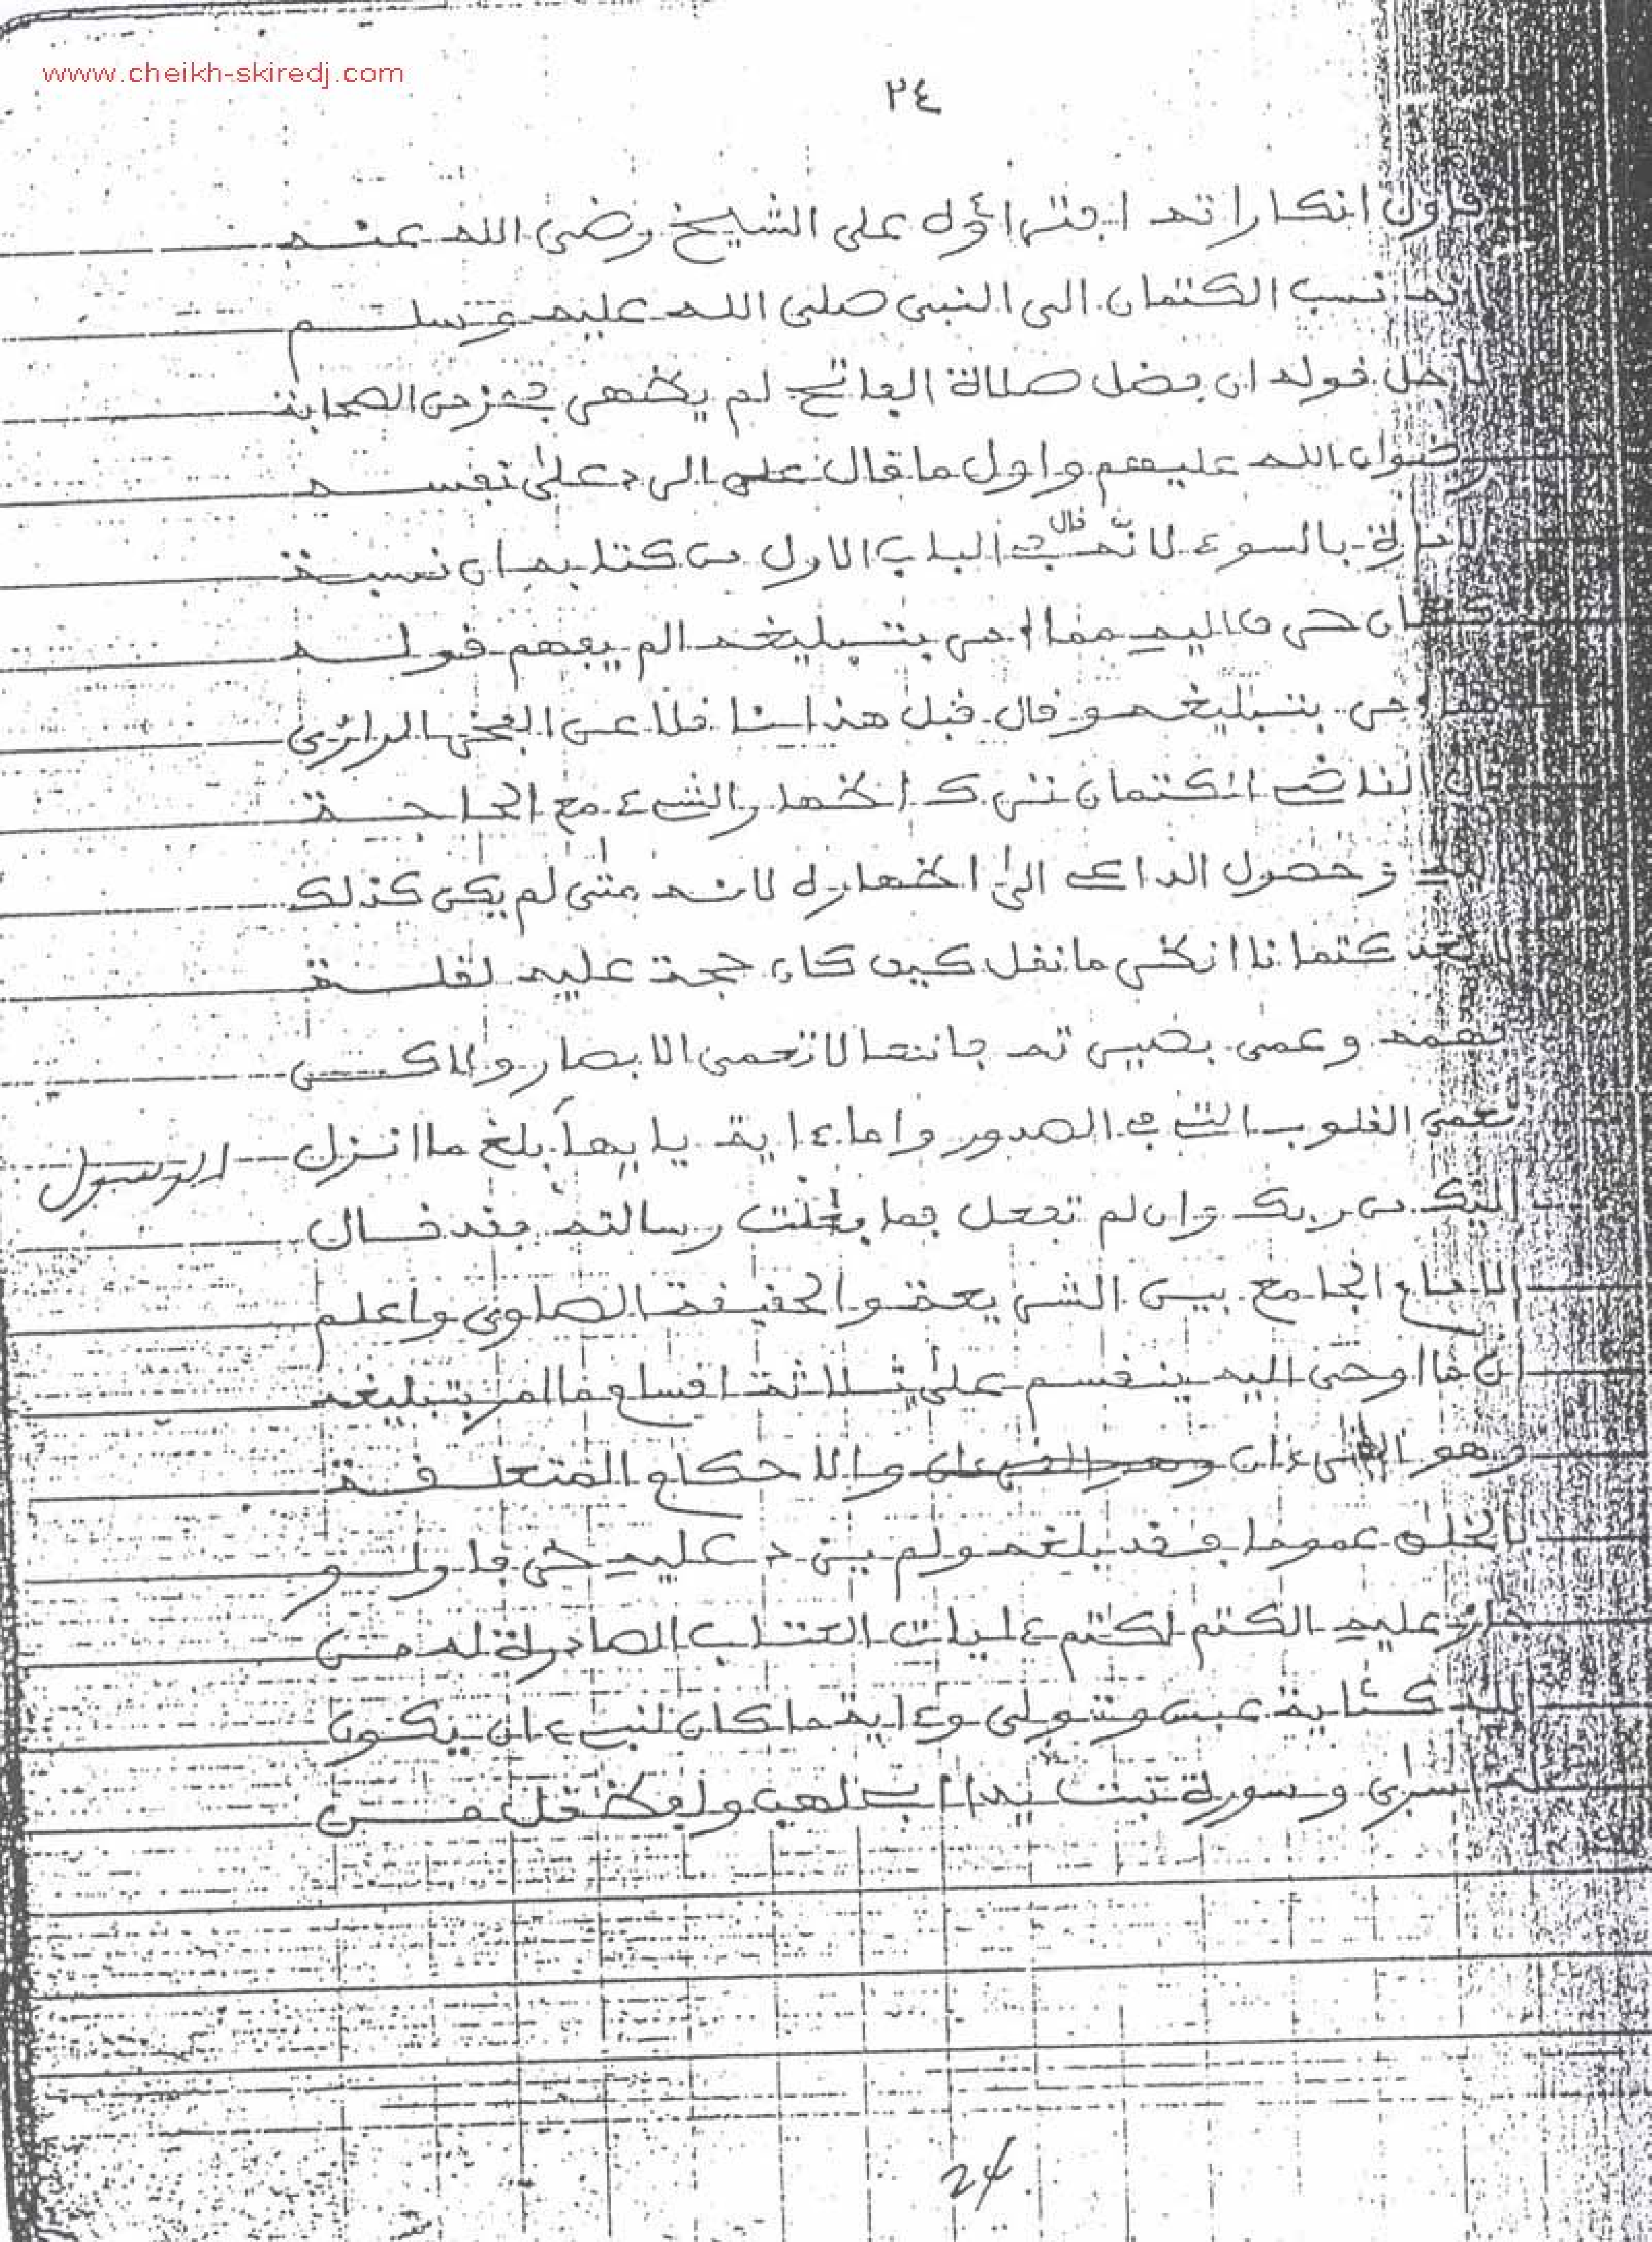 www.cheikh-skiredj.com
٢٤
فاول انكاراته اجتراؤه على الشيخ رضى الله عنه
انه نسب الكتمان الى النبى صلى الله عليه وسلم
لاجل قوله ان فضل صلاة الفاتح لم يظهر فى زمن الصحابة
رضوان الله عليهم واول ما قال على الرد على نفسه
الامارة بالسوء لانه قال فى الباب الاول من كتابه ان نسبة
كتمان حرف اليه مما امر بتبليغه الم يفهم قوله
مما امر بتبليغه وقال قبل هذا نا قلا عن الفخر الرازى
قال القاضى الكتمان ترك اظهار الشىء مع الحاجة
اليه وحصول الداعى الى اظهاره لانه متى لم يكن كذلك
لا يعد كتمانا انظر ما نقل كيف كان حجة عليه لقلة
فهمه وعمى بصيرته فانها لا تعمى الابصار ولاكن
تعمى القلوب التى فى الصدور واما ءاية يا ايها بلغ ما انزل
الرسول
اليك من ربك وان لم تفعل فما بلغت رسالته فقد قال
الامام الجامع بين الشريعة والحقيقة الصاوى واعلم
ان ما اوحى اليه ينقسم على ثلاثة اقسام ما امر بتبليغه
وهو القرءان وهو القرءان والاحكام المتعلقة
بالخلق عموما فقد بلغه ولم يزد عليه حرفا ولو
جاز عليه الكتم لكتم ءايات العتاب الصادرة له من
الله كئاية عبس وتولى وءاية ما كان لنبىء ان يكون
له اسرى وسورة تبت يدا ابى لهب ولفظ قل من
24